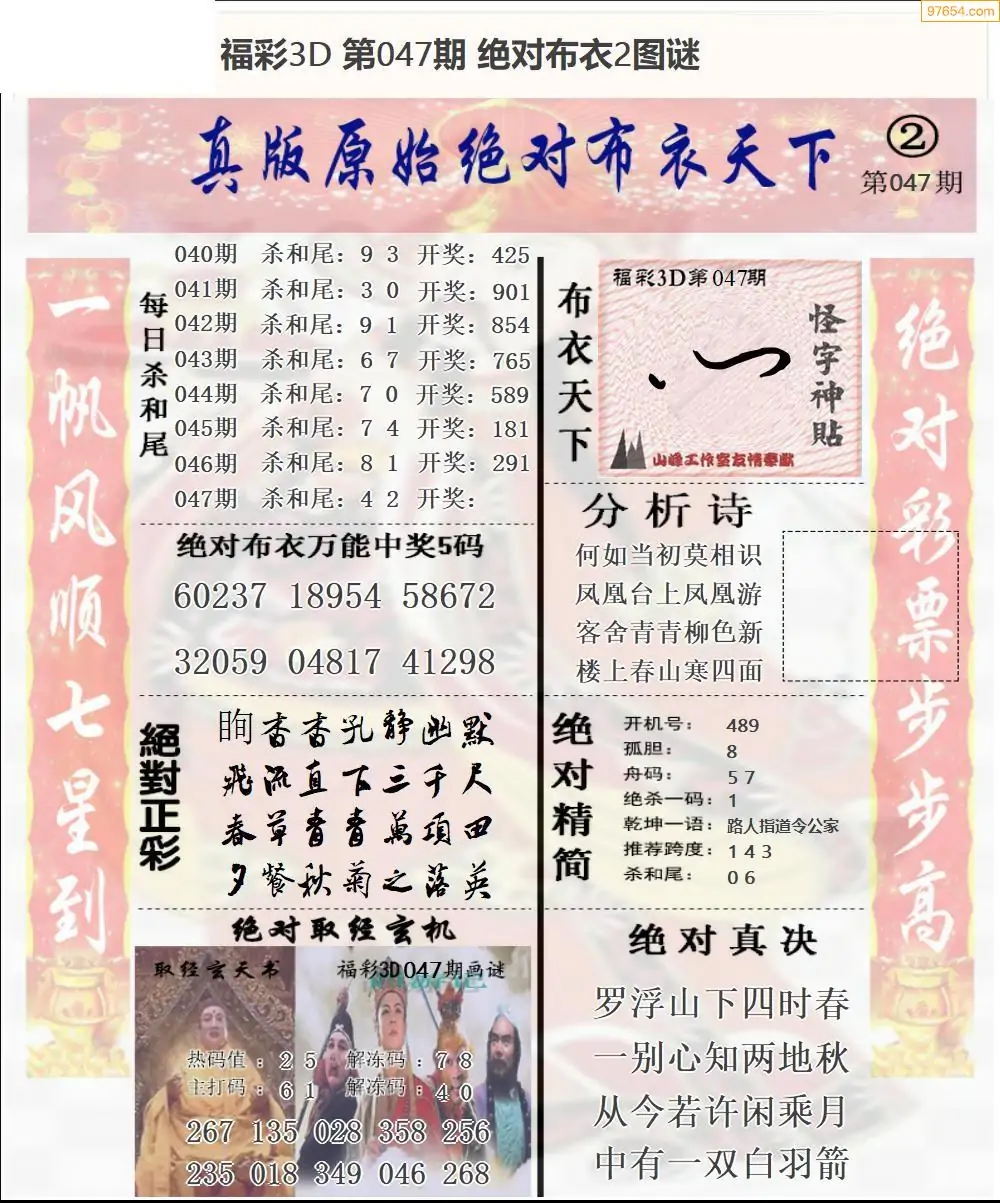 97654.com
福彩3D 第047期 绝对布衣2图谜
真版原始绝对布衣天下
②
第047期
一帆风顺七星到
每日杀和尾
040期 杀和尾：9 3 开奖：425
041期 杀和尾：3 0 开奖：901
042期 杀和尾：9 1 开奖：854
043期 杀和尾：6 7 开奖：765
044期 杀和尾：7 0 开奖：589
045期 杀和尾：7 4 开奖：181
046期 杀和尾：8 1 开奖：291
047期 杀和尾：4 2 开奖：
绝对布衣万能中奖5码
60237 18954 58672
32059 04817 41298
絕對正彩
眴杳杳孔静幽默
飛流直下三千尺
春草青青萬項田
夕餐秋菊之落英
绝对取经玄机
取经玄天书
福彩3D047期画谜
热码值：2 5 解冻码：7 8
主打码：6 1 解冻码：4 0
267 135 028 358 256
235 018 349 046 268
布衣天下
福彩3D第047期
怪字神貼
山峰工作室友情奉献
分析诗
何如当初莫相识
凤凰台上凤凰游
客舍青青柳色新
楼上春山寒四面
绝对精简
开机号： 489
孤胆： 8
舟码： 5 7
绝杀一码：1
乾坤一语：路人指道令公家
推荐跨度：1 4 3
杀和尾： 0 6
绝对真决
罗浮山下四时春
一别心知两地秋
从今若许闲乘月
中有一双白羽箭
绝对彩票步步高